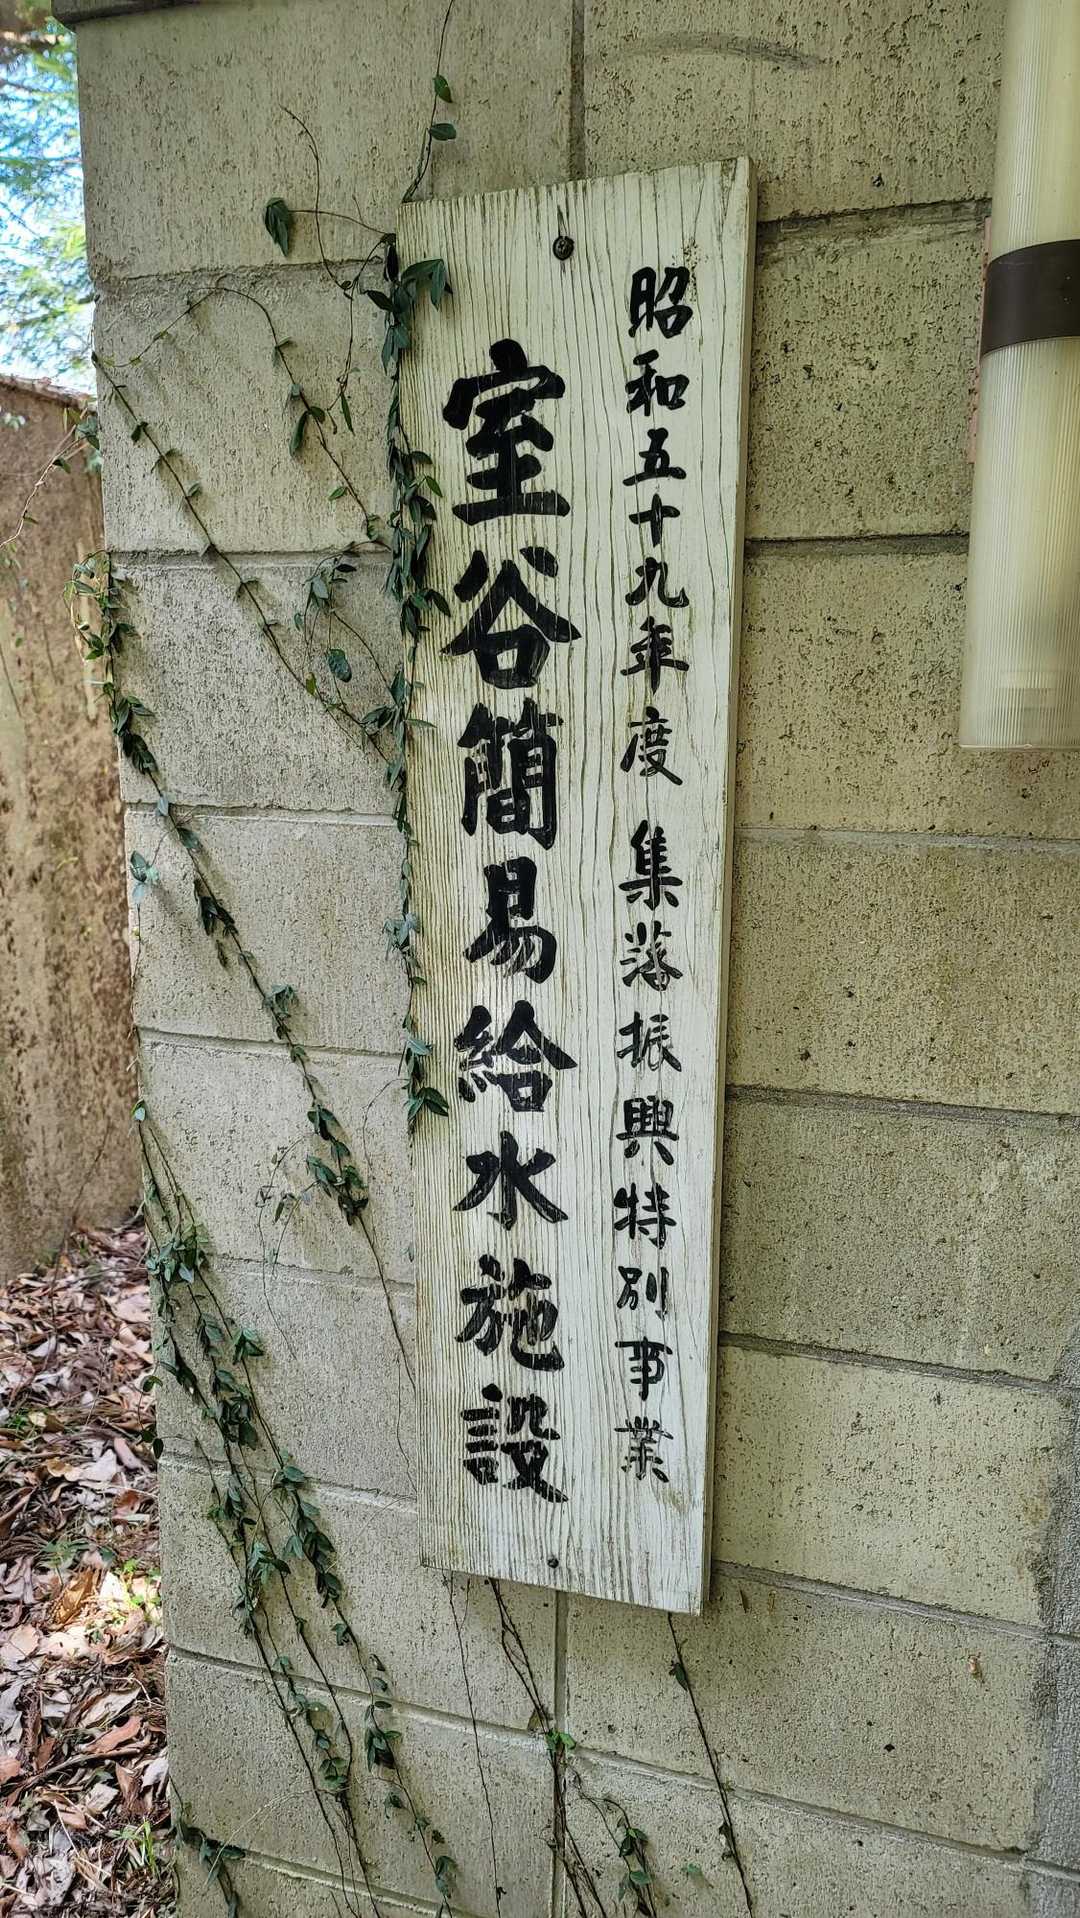 昭和五十九年度 集落振興特別事業
室谷簡易給水施設